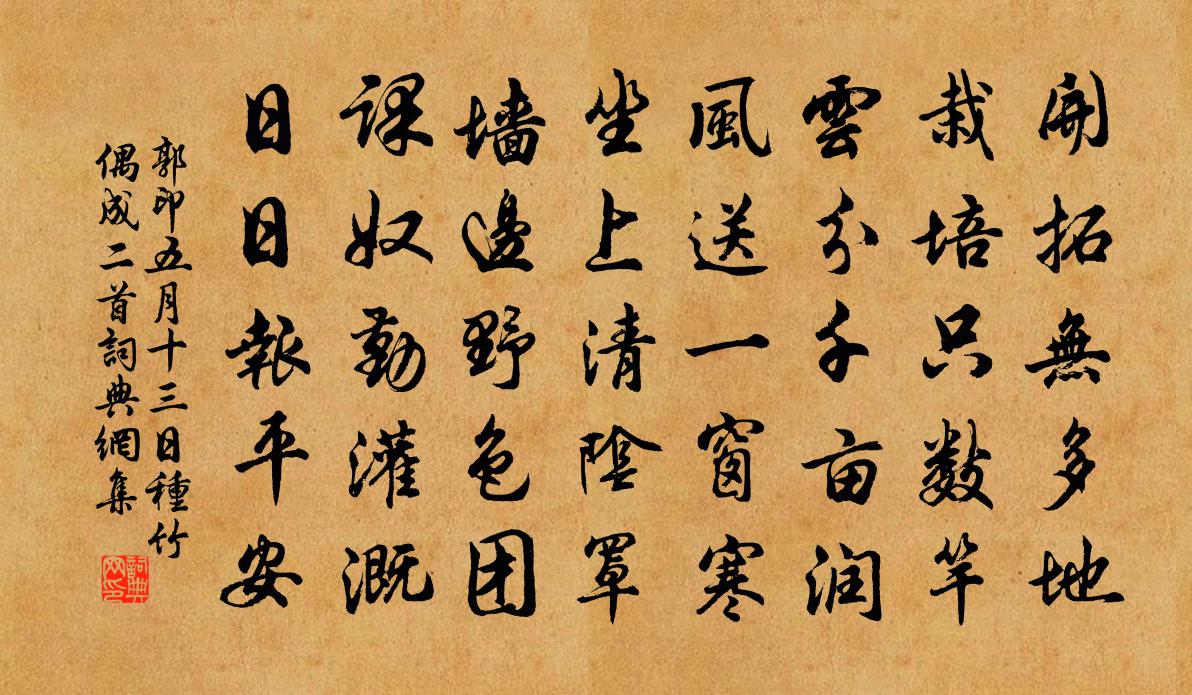 開拓無多地
栽培只數竿
雲分千亩润
風送一窗寒
坐上清陰罩
墙邊野色团
課奴勤灌溉
日日報平安
郭印五月十三日種竹
偶成二首詞典網集
詞典網印